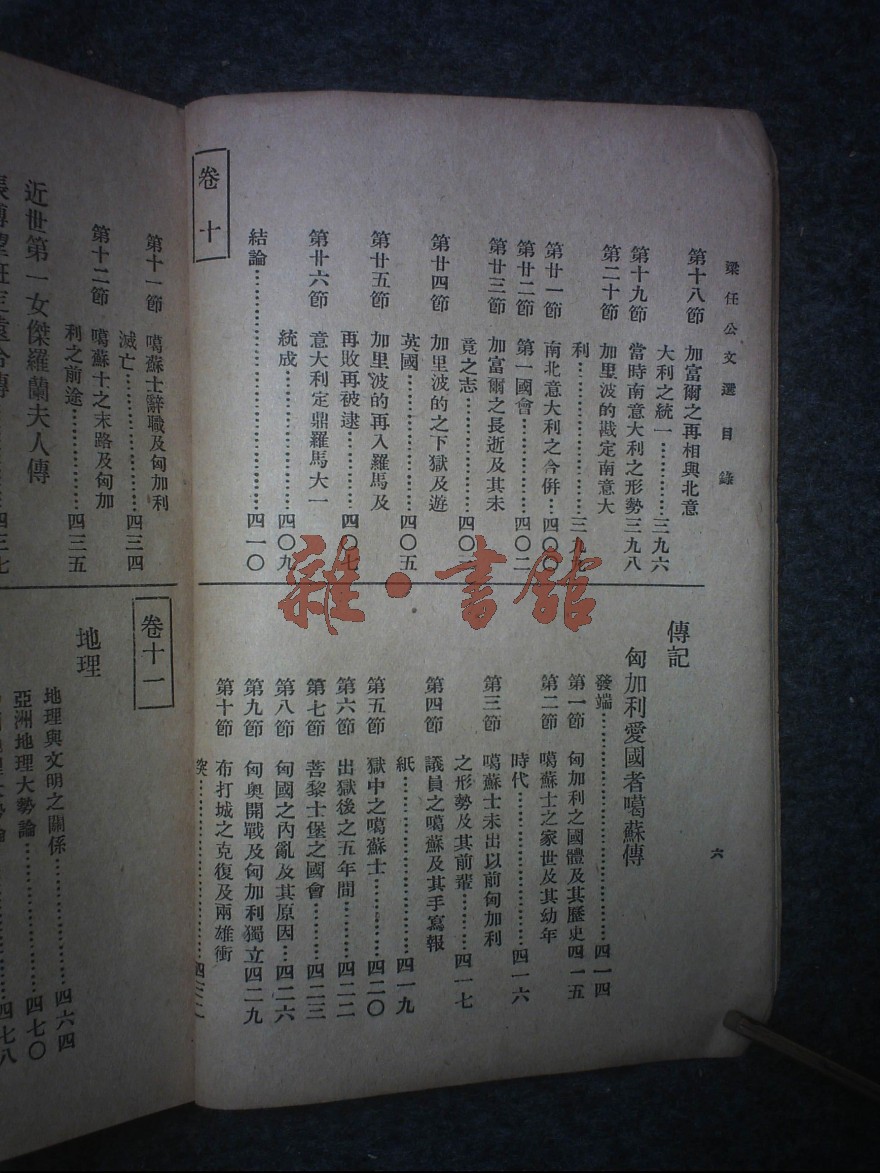 梁任公文選目錄
第十八節 加富爾之再相與北意
大利之統一…………三九六
第十九節 當時南意大利之形勢三九八
第二十節 加里波的戡定南意大
利…………三九九
第廿一節 南北意大利之合併…四〇〇
第廿二節 第一國會…………四〇二
第廿三節 加富爾之長逝及其未
竟之志…………四〇三
第廿四節 加里波的之下獄及遊
英國…………四〇五
第廿五節 加里波的再入羅馬及
再敗再被逮…………四〇七
第廿六節 意大利定鼎羅馬大一
統成…………四〇九
結論…………四一〇
卷十
傳記
匈加利愛國者噶蘇傳
發端…………四一四
第一節 匈加利之國體及其歷史四一五
第二節 噶蘇士之家世及其幼年
時代…………四一六
第三節 噶蘇士未出以前匈加利
之形勢及其前輩…………四一七
第四節 議員之噶蘇及其手寫報
紙…………四一九
第五節 獄中之噶蘇士…………四二〇
第六節 出獄後之五年間…………四二二
第七節 菩黎士堡之國會…………四二三
第八節 匈國之內亂及其原因…四二六
第九節 匈奧開戰及匈加利獨立四二九
第十節 布打城之克復及兩雄衝
突…………
六
第十一節 噶蘇士辭職及匈加利
滅亡…………四三四
第十二節 噶蘇士之末路及匈加
利之前途…………四三五
近世第一女傑羅蘭夫人傳
四三七
卷十一
地理
地理與文明之關係…………四六四
亞洲地理大勢論…………四七〇
四七八
雜·書館